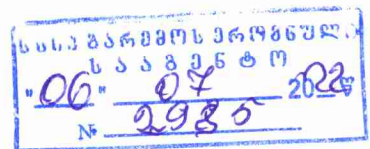 ს.ს.ი.პ გარემოს ეროვნული
სააგენტო
"06" 07 2022წ
№ 2985